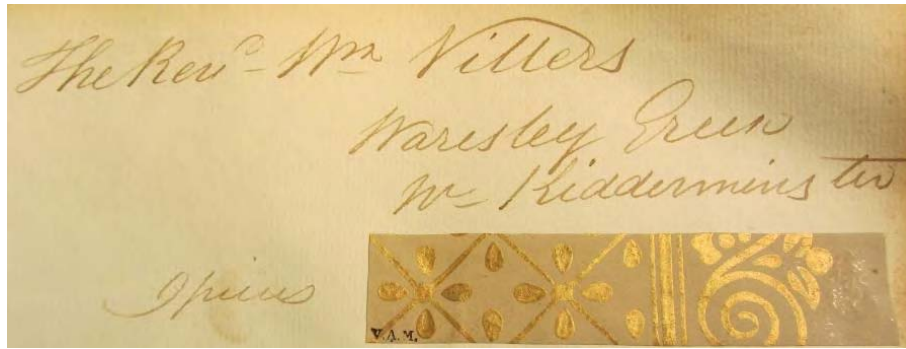 The Revd Wm Villers
Waresley Green
Nr Kidderminster
9 pieces
V.A.M.